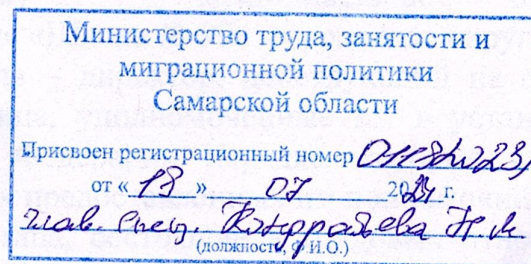 Министерство труда, занятости и
миграционной политики
Самарской области
Присвоен регистрационный номер
от « 18 » 07 2024 г.
глав. спец. Кондратьева Н.М.
(должность, Ф.И.О.)